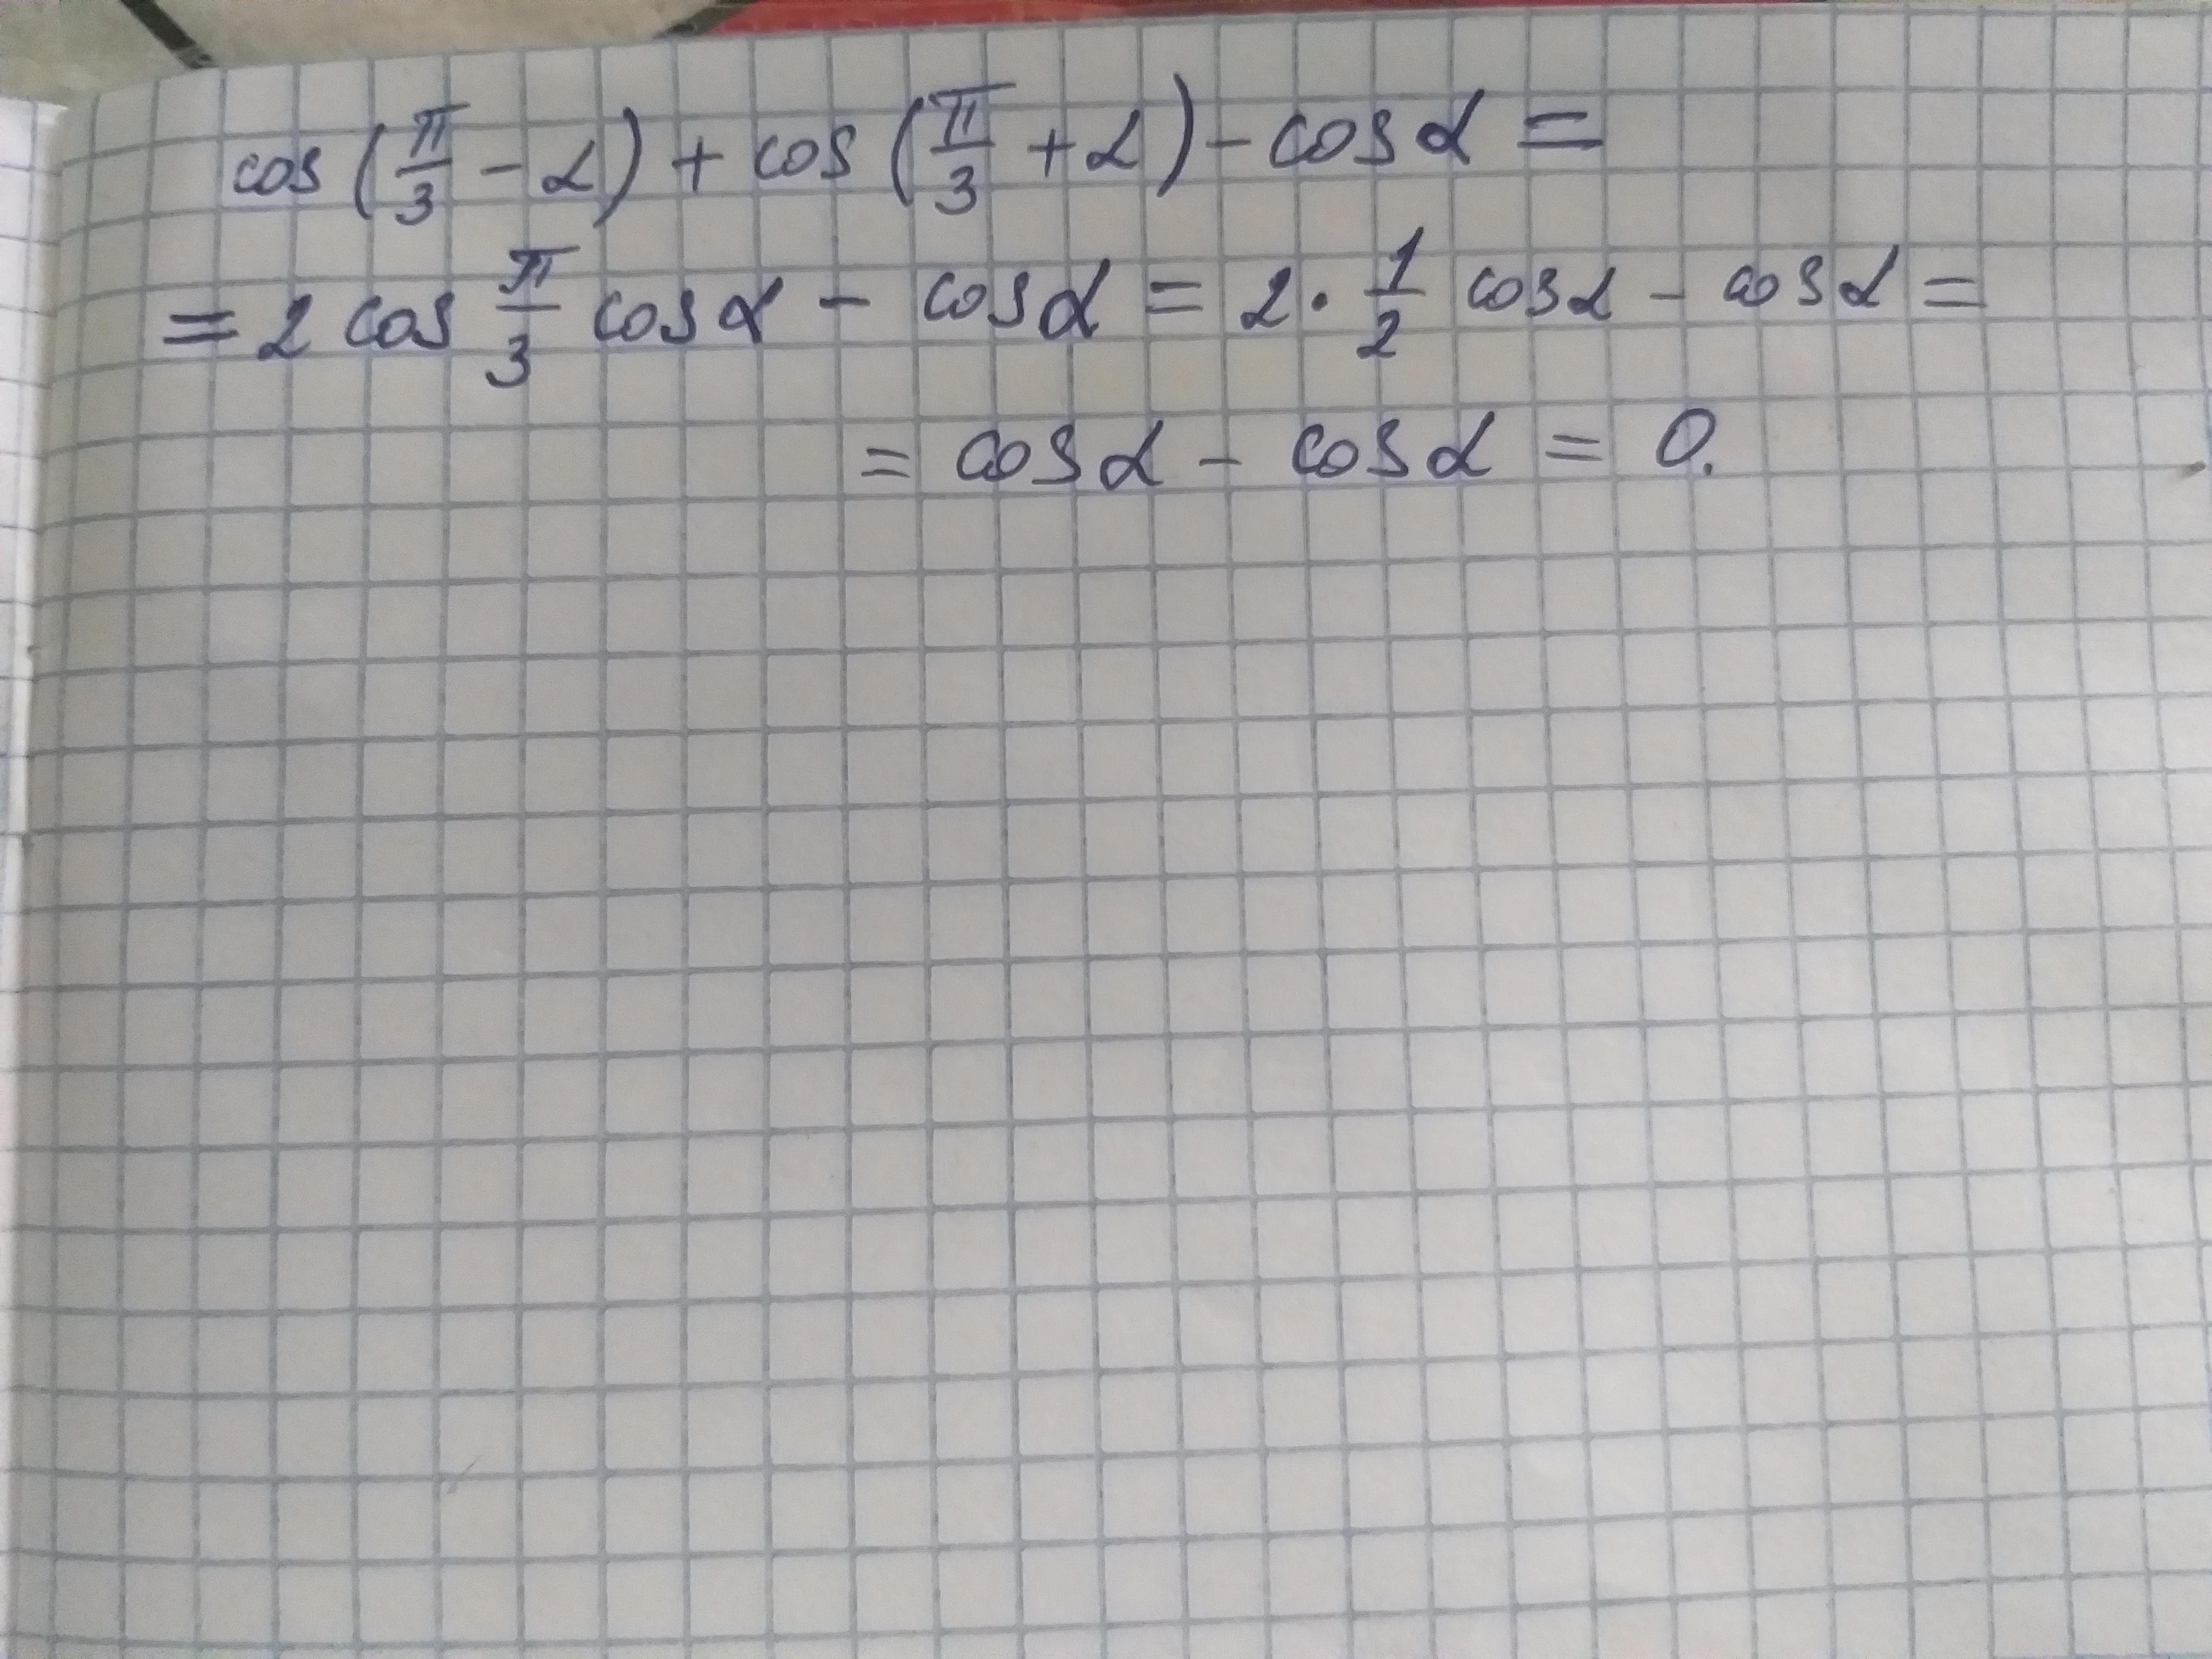 cos(π/3 - α) + cos(π/3 + α) - cos α =
= 2 cos π/3 cos α - cos α = 2 · 1/2 cos α - cos α =
= cos α - cos α = 0.